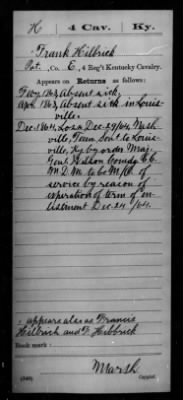 H | 4 Cav. | Ky.
Frank Hilbrick
Pvt., Co. E, 4 Reg't Kentucky Cavalry.
Appears on Returns as follows:
Feby 1863, Absent sick,
Apr. 1863, Absent sick in Louis-
ville.
Dec. 1864, Loss Dec. 29/64, Nash-
ville, Tenn. Sent to Louis-
ville, Ky. by order Maj.
Genl. Wilson comdg C.C.
M.D.M. to be M.O. of
service by reason of
expiration of term of en-
listment Dec. 24/64.
- appears also as Francis
Heilbrich and F. Hebbrick
Book mark:
Marsh
(546) Copyist.